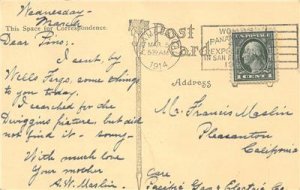 Wednesday-
March
This Space for Correspondence.
Post
Card
MAR 5
1914
WORLD'S
PAN
EXPOSITION
IN SAN
1 CENT 1
Dear Sons;
I sent, by
Wells Fargo, some things
to you today.
I searched for the
Dwiggins picture, but did
not find it - sorry-
With much love
Your mother
A.W. Maslin
Address
Mr. Francis Maslin
Pleasanton
California
Care
Pacific Gas & Electric Co